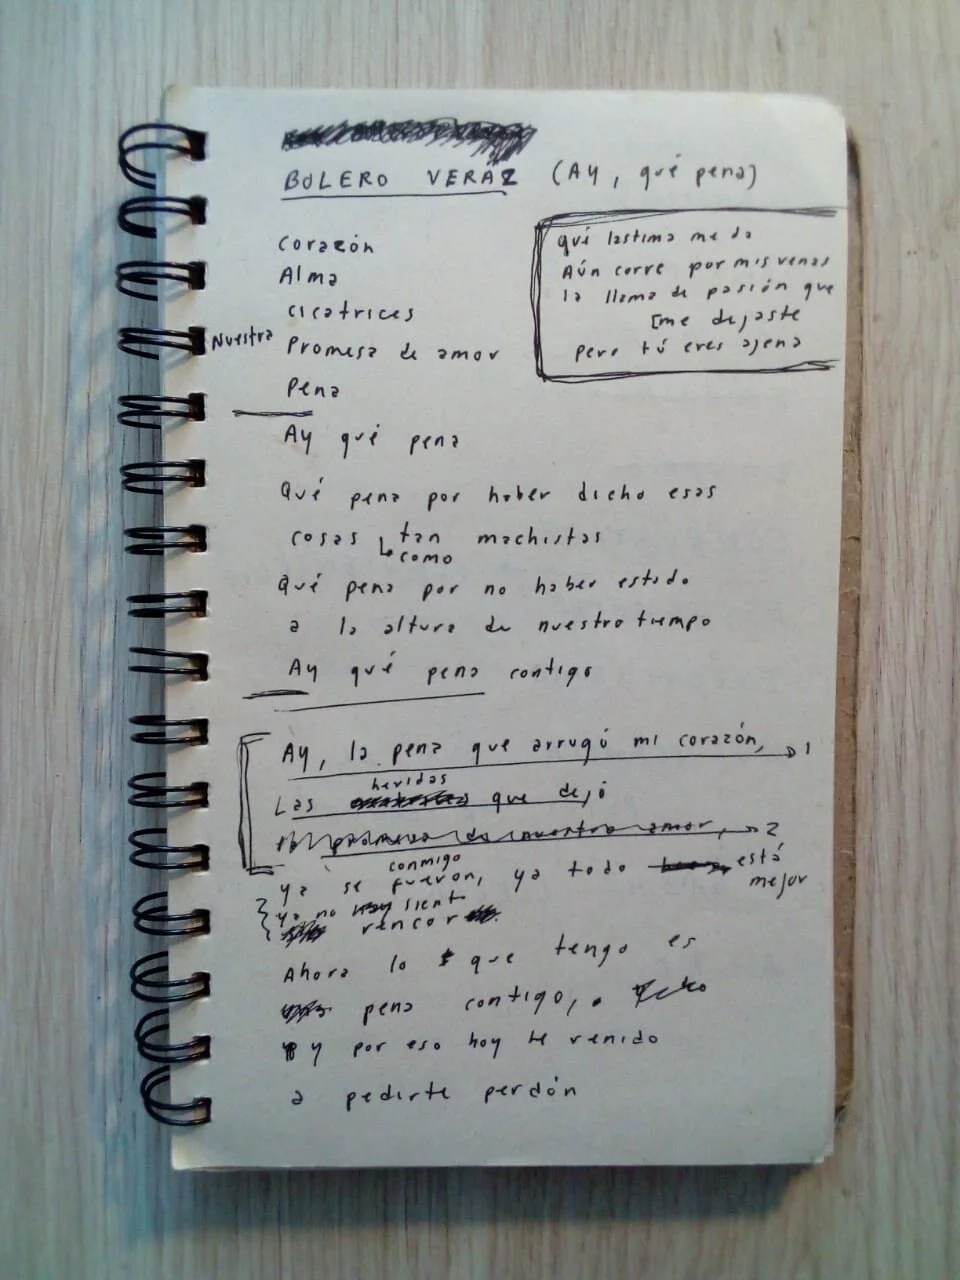 BOLERO VERÁZ (Ay, qué pena)
qué lástima me da
Aún corre por mis venas
la llama de pasión que
[me dejaste
pero tú eres ajena
corazón
Alma
cicatrices
Nuestra Promesa de amor
Pena
Ay qué pena
Qué pena por haber dicho esas
cosas tan machistas
como
Qué pena por no haber estado
a la altura de nuestro tiempo
Ay qué pena contigo
Ay, la pena que arrugó mi corazón, 1
heridas
Las que dejó
promesa de nuestro amor, 2
conmigo
ya se fueron, ya todo está
mejor
ya no hay
rencor
Ahora lo que tengo es
pena contigo,
y por eso hoy he venido
a pedirte perdón